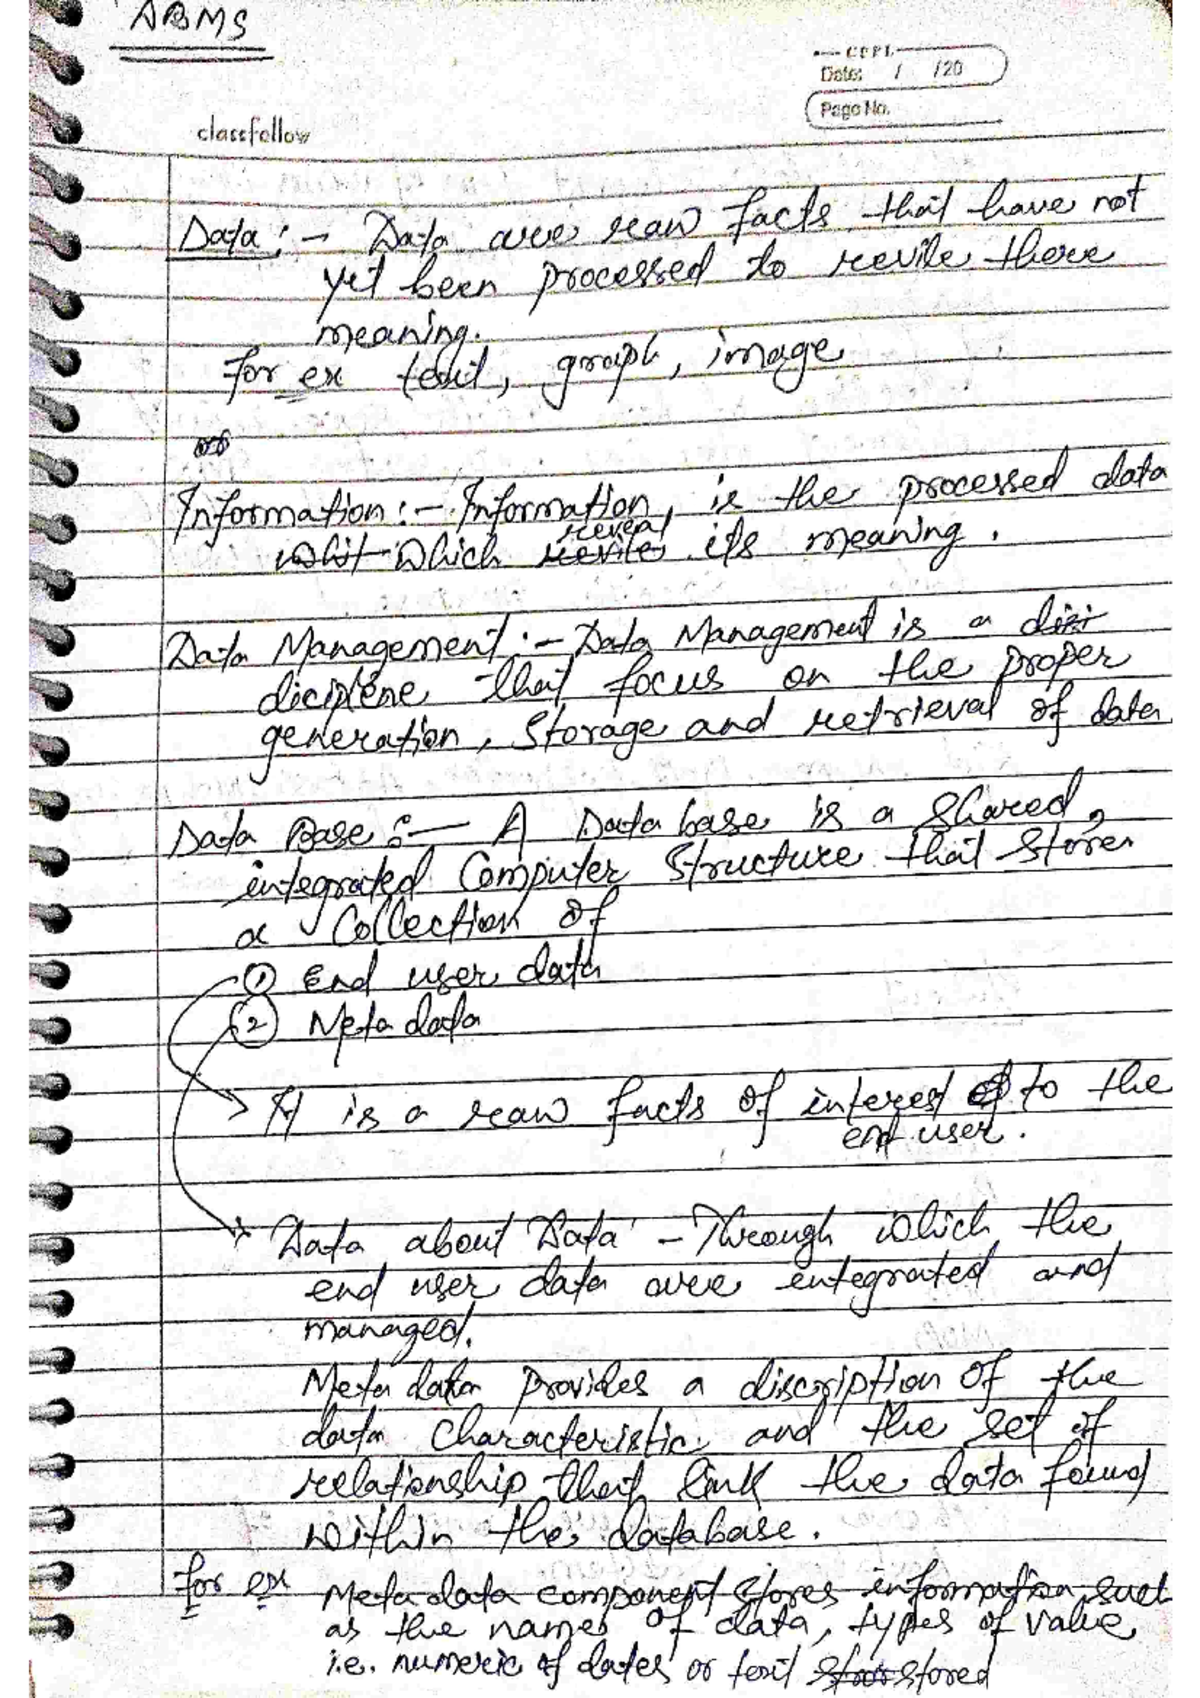 DBMS
CPPL
Date: / /20
Page No.
classfellow
Data :- Data are raw facts that have not
yet been processed to revile there
meaning.
for ex text, graph, image
or
Information :- Information, is the processed data
whit which revile reveal its meaning.
Data Management :- Data Management is a disi
diciplene that focus on the proper
generation, storage and retrieval of data
Data Base :- A Data base is a shared,
integrated Computer structure that stores
a Collection of
① End user data
② Meta data
It is a raw facts of interest of to the
end user.
Data about Data - Through which the
end user data are entegrated and
managed.
Meta data provides a discription of the
data characteristic and the set of
relationship that link the data found
within the database.
for ex Meta data component stores information such
as the names of data, types of value
i.e. numeric of dates or text stor stored